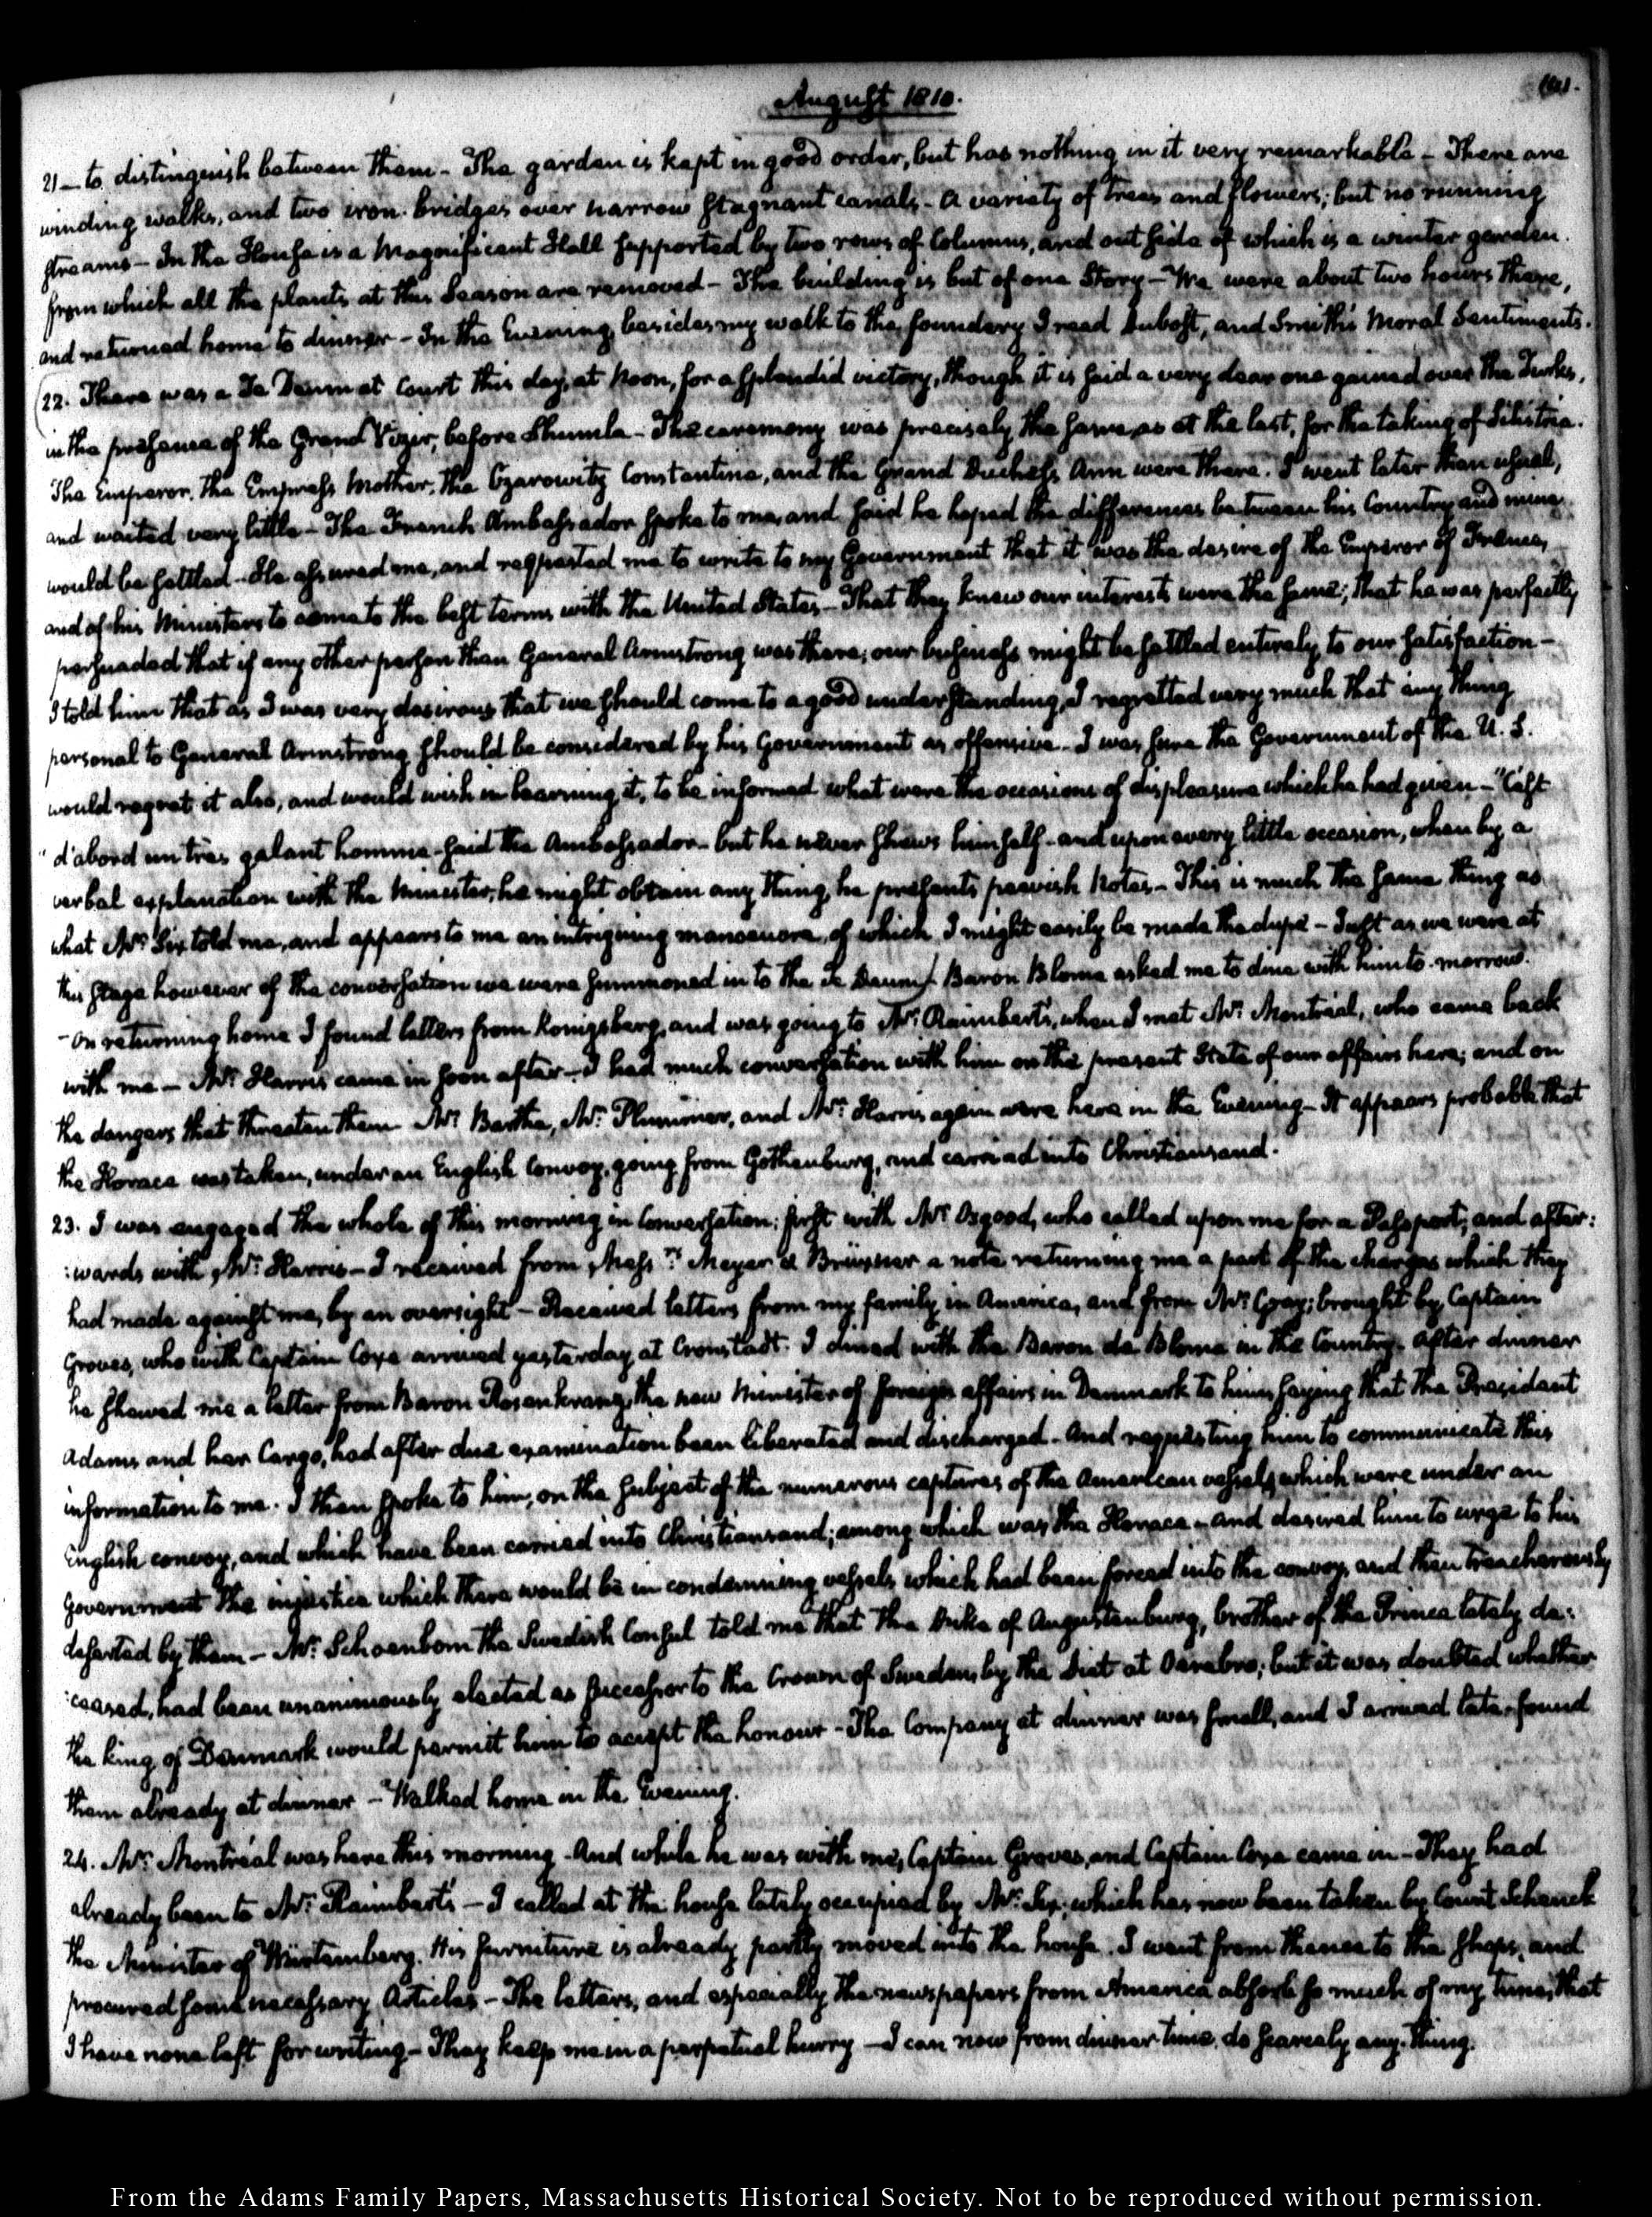 August 1810.
21 — to distinguish between them - The garden is kept in good order, but has nothing in it very remarkable - There are
winding walks, and two iron bridges over narrow stagnant canals - A variety of trees and flowers; but no running
streams - In the House is a Magnificent Hall supported by two rows of Columns, and out side of which is a winter garden.
from which all the plants at this Season are removed - The building is but of one Story - We were about two hours there,
and returned home to dinner - In the Evening, besides my walk to the foundery I read Dubost, and Smith's Moral Sentiments.
22. There was a Te Deum at Court this day, at Noon, for a splendid victory, though it is said a very dear one gained over the Turks,
in the presence of the Grand Vizir, before Shumla - The ceremony was precisely the same as at the last, for the taking of Silistria.
The Emperor, the Empress Mother, the Czarowitz Constantine, and the Grand Duchess Ann were there. I went later than usual,
and waited very little - The French Ambassador spoke to me, and said he hoped the differences between his Country and mine
would be settled - He assured me, and requested me to write to my Government that it was the desire of the Emperor of France,
and of his Ministers to come to the best terms with the United States - That they knew our interests were the same; that he was perfectly
persuaded that if any other person than General Armstrong was there, our business might be settled entirely to our satisfaction -
I told him that as I was very desirous that we should come to a good understanding, I regretted very much that any thing
personal to General Armstrong should be considered by his Government as offensive - I was sure the Government of the U. S.
would regret it also, and would wish in learning it, to be informed what were the occasions of displeasure which he had given - "C'est
"d'abord un très galant homme said the Ambassador - but he never shews himself - and upon every little occasion, when by a
verbal explanation with the Minister, he might obtain any thing, he presents peevish Notes - This is much the same thing as
what Mr. Six told me, and appears to me an intriguing manoeuvre, of which I might easily be made the dupe - Just as we were at
this stage however of the conversation we were summoned in to the Te Deum / Baron Blome asked me to dine with him to-morrow.
- On returning home I found letters from Konigsberg, and was going to Mr. Raimbert's, when I met Mr. Montréal, who came back
with me - Mr. Harris came in soon after - I had much conversation with him on the present State of our affairs here; and on
the dangers that threaten them - Mr. Barthe, Mr. Plummer, and Mr. Harris again were here in the Evening - It appears probable that
the Horace was taken, under an English Convoy, going from Gothenburg, and carried into Christiansand.
23. I was engaged the whole of this morning in Conversation; first with Mr. Osgood, who called upon me for a Passport; and after:
:wards with Mr. Harris - I received from Messrs. Meyer & Brüxner a note returning me a part of the charges which they
had made against me, by an oversight - Received letters from my family in America, and from Mr. Gray; brought by Captain
Groves, who with Captain Coye arrived yesterday at Cronstadt. I dined with the Baron de Blome in the Country. After dinner
he shewed me a letter from Baron Rosenkranz, the new Minister of foreign affairs in Denmark to him, saying that the President
Adams and her Cargo, had after due examination been liberated and discharged - And requesting him to communicate this
information to me. I then spoke to him, on the subject of the numerous captures of the American vessels, which were under an
English convoy, and which have been carried into Christiansand; among which was the Horace - and desired him to urge to his
Government the injustice which there would be in condemning vessels which had been forced into the convoy, and then treacherously
deserted by them - Mr. Schoenbom the Swedish Consul told me that the Duke of Augustenburg, brother of the Prince lately de:
:ceased, had been unanimously elected as successor to the Crown of Sweden, by the Diet at Oerebro; but it was doubted whether
the King of Denmark would permit him to accept the honour - The Company at dinner was small, and I arrived late - found
them already at dinner - Walked home in the Evening.
24. Mr. Montréal was here this morning - And while he was with me, Captain Groves, and Captain Coye came in - They had
already been to Mr. Raimbert's - I called at the house lately occupied by Mr. Six; which has now been taken by Count Schenck
the Minister of Würtemberg. His furniture is already partly moved into the house. I went from thence to the shops, and
procured some necessary Articles - The letters, and especially the newspapers from America absorb so much of my time, that
I have none left for writing - They keep me in a perpetual hurry - I can now from dinner time do scarcely any thing.
From the Adams Family Papers, Massachusetts Historical Society. Not to be reproduced without permission.